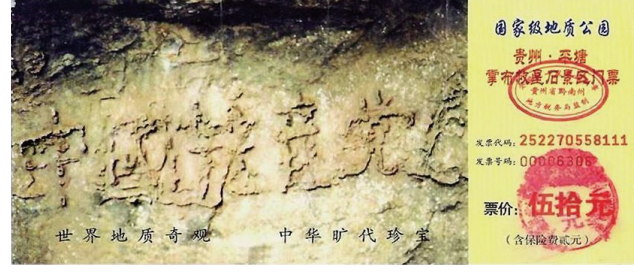 中國共産党亡
世界地质奇观 中华旷代珍宝
国家级地质公园
贵州·平塘
掌布救星石景区门票
贵州省黔南州
地方税务局监制
发票代码：252270558111
发票号码：
票价：伍拾元
（含保险费贰元）